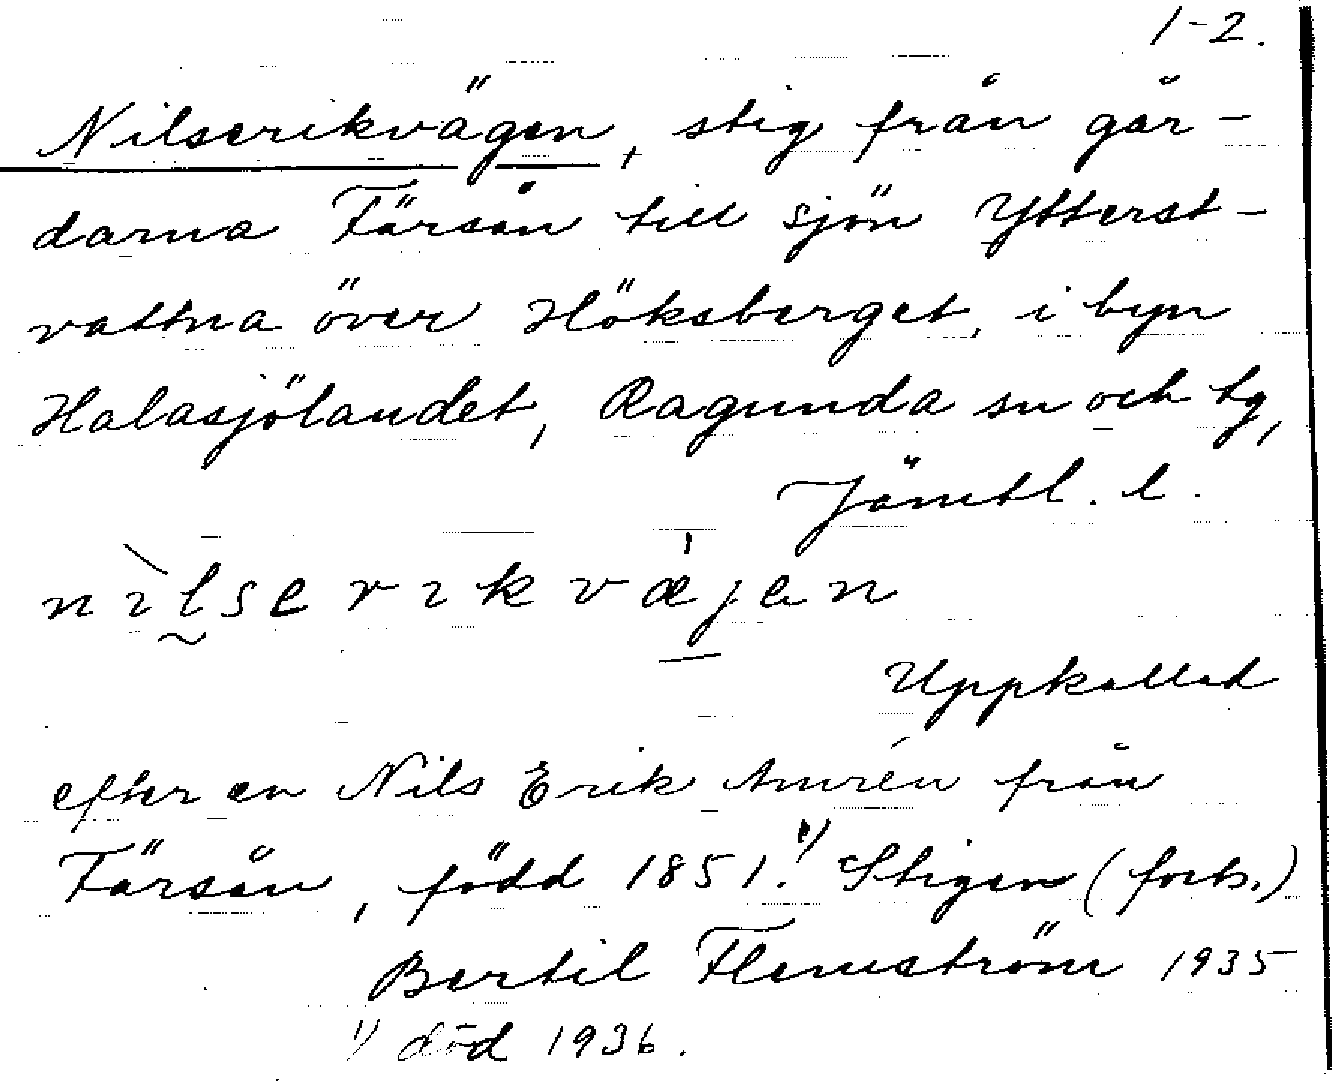 1-2.
Nilserikvägen, stig från går-
darna Färsån till sjön Ytterst-
vattna över Höksberget, i byn
Halasjölandet, Ragunda sn och tg,
Jämtl. l.
nìlserikvæjen
Uppkallad
efter en Nils Erik Amrén från
Färsån, född 1851.¹⁾ Stigen (forts.)
Bertil Flemström 1935
¹⁾ död 1936.